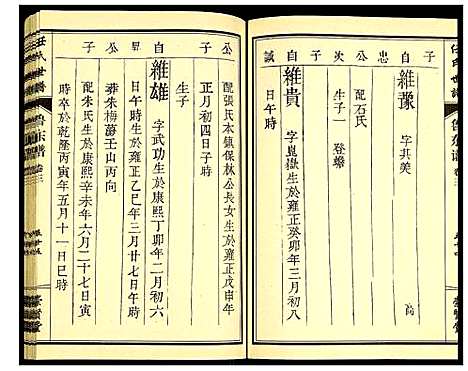 自忠公次子
維豫
字共美
配石氏
生子一
登鰲
自誠
子
維貴
字崑嶽生於雍正癸卯年三月初八
日午時
公子
配張氏本氣保林公長女生於雍正戊申年
正月初四日子時
生子
自
公
子
維雄
字武功生於康熙丁卯年二月初六
時卒於雍正乙巳年三月廿七日午時
葬朱梅蕚壬山丙向
配朱氏生於康熙辛未年六月二十七日寅
時卒於乾隆丙寅年五月十一日巳時
任氏世譜
魯東譜
卷三